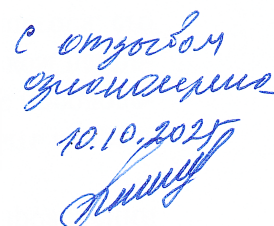 с отзывом
ознакомлена
10.10.2025